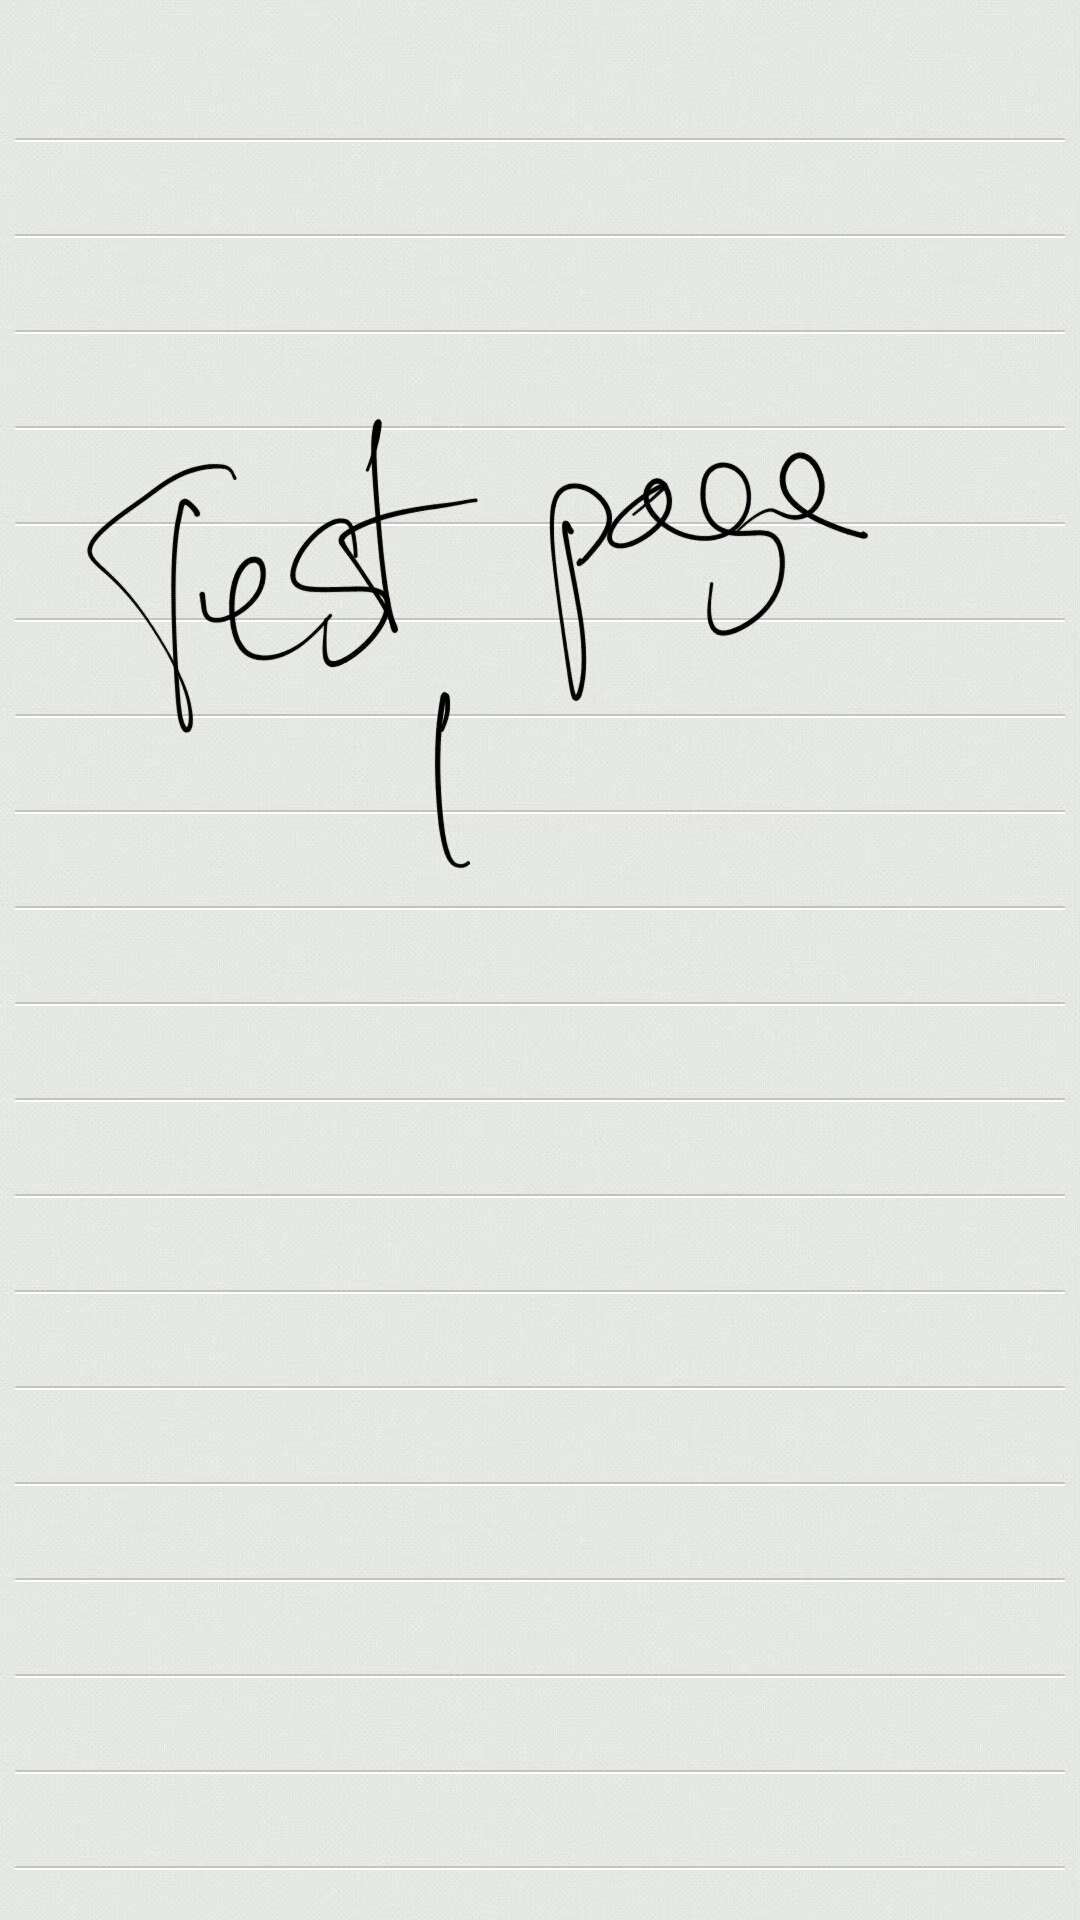 Test page
1